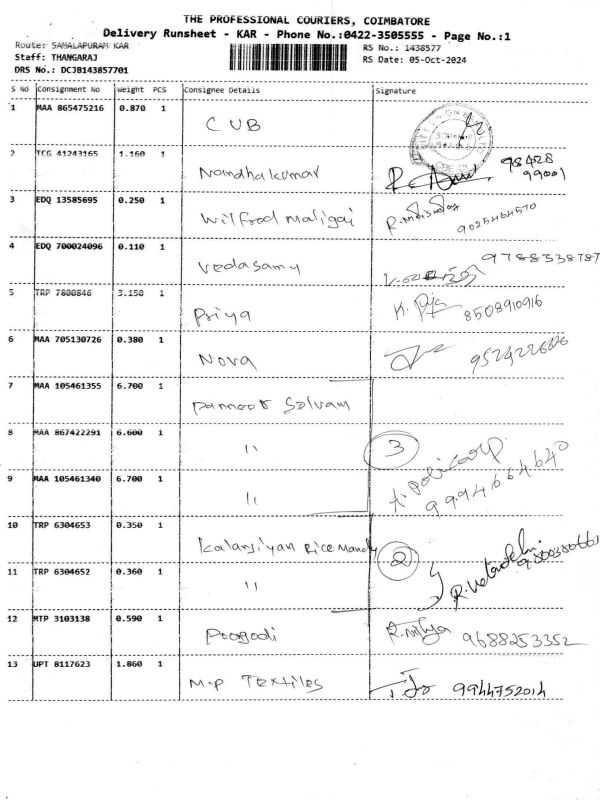 THE PROFESSIONAL COURIERS, COIMBATORE
Delivery Runsheet - KAR - Phone No.:0422-3505555 - Page No.:1
Route: SAMALAPURAM KAR RS No.: 1438577
Staff: THANGARAJ RS Date: 05-Oct-2024
DRS No.: DCJB143857701
S No Consignment No Weight PCS Consignee Details Signature
1 MAA 865475216 0.870 1 CUB
2 TCG 41243165 1.160 1 Nandhakumar 98428 99001
3 EDQ 13585695 0.250 1 Wilfred Maligai
4 EDQ 700024096 0.110 1 Vedasamy 9788538787
5 TRP 7800846 3.150 1 Priya K. Priya 8508910916
6 MAA 705130726 0.380 1 Nova
7 MAA 105461355 6.700 1 Panneer Selvam
8 MAA 867422291 6.600 1 11 3
9 MAA 105461340 6.700 1 11 9994664640
10 TRP 6304653 0.350 1 Kalanjiyan Rice Mandy 2
11 TRP 6304652 0.360 1 11
12 MTP 3103138 0.590 1 Pragadi R.nithya 9688253352
13 UPT 8117623 1.860 1 M.P Textiles 9944752014